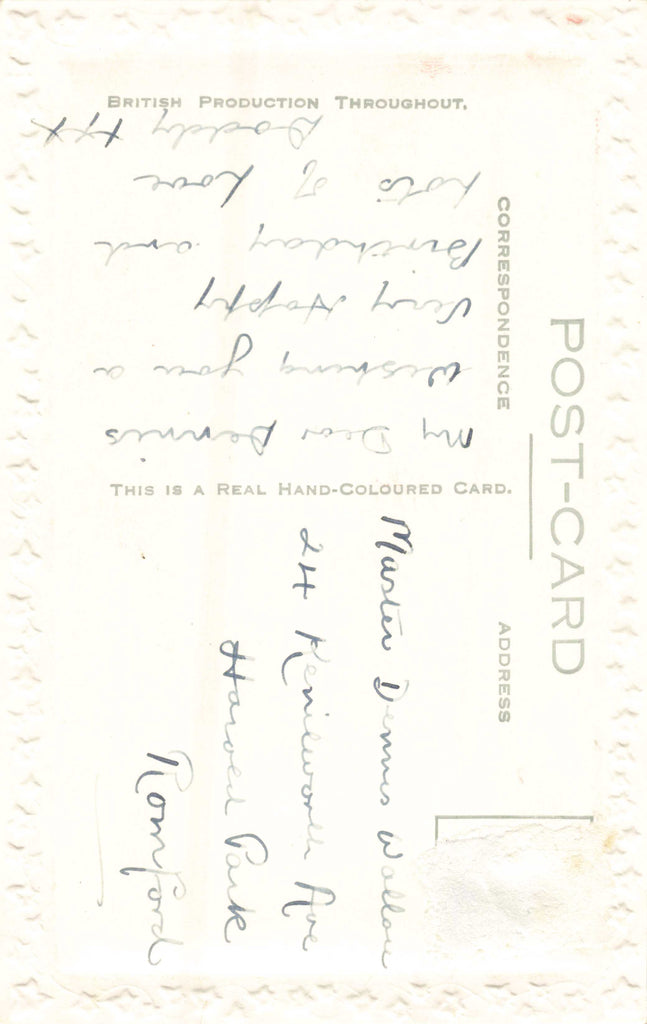 POST-CARD
CORRESPONDENCE
ADDRESS
BRITISH PRODUCTION THROUGHOUT.
THIS IS A REAL HAND-COLOURED CARD.
My Dear Dennis
Wishing you a
Very Happy
Birthday and
Lots of Love
Daddy xxx
Master Dennis
24 Kenilworth Ave
Harold Park
Romford